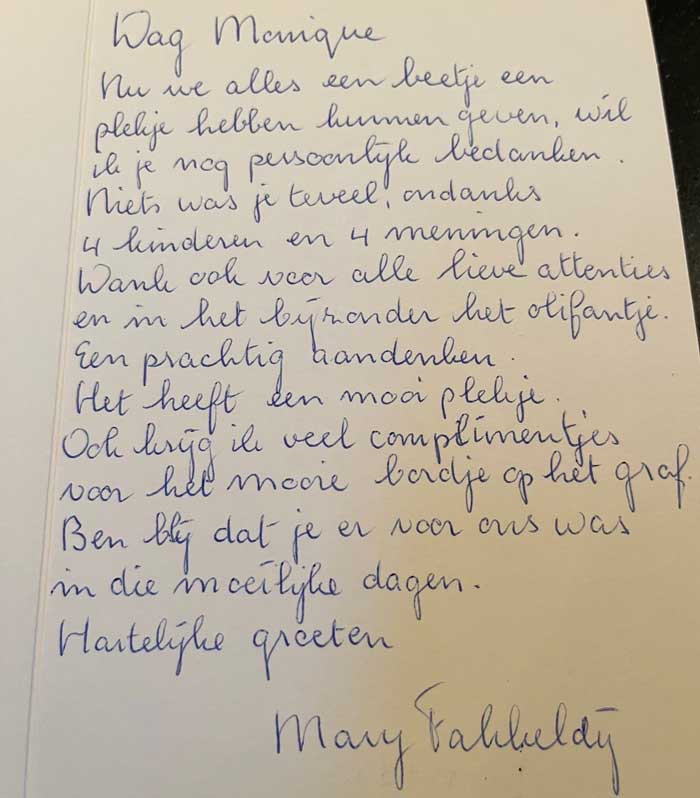 Dag Monique
Nu we alles een beetje een
plekje hebben kunnen geven, wil
ik je nog persoonlijk bedanken.
Niets was je teveel, ondanks
4 kinderen en 4 meningen.
Dank ook voor alle lieve attenties
en in het bijzonder het olifantje.
Een prachtig aandenken.
Het heeft een mooi plekje.
Ook krijg ik veel complimentjes
voor het mooie bordje op het graf.
Ben blij dat je er voor ons was
in die moeilijke dagen.
Hartelijke groeten
Mary